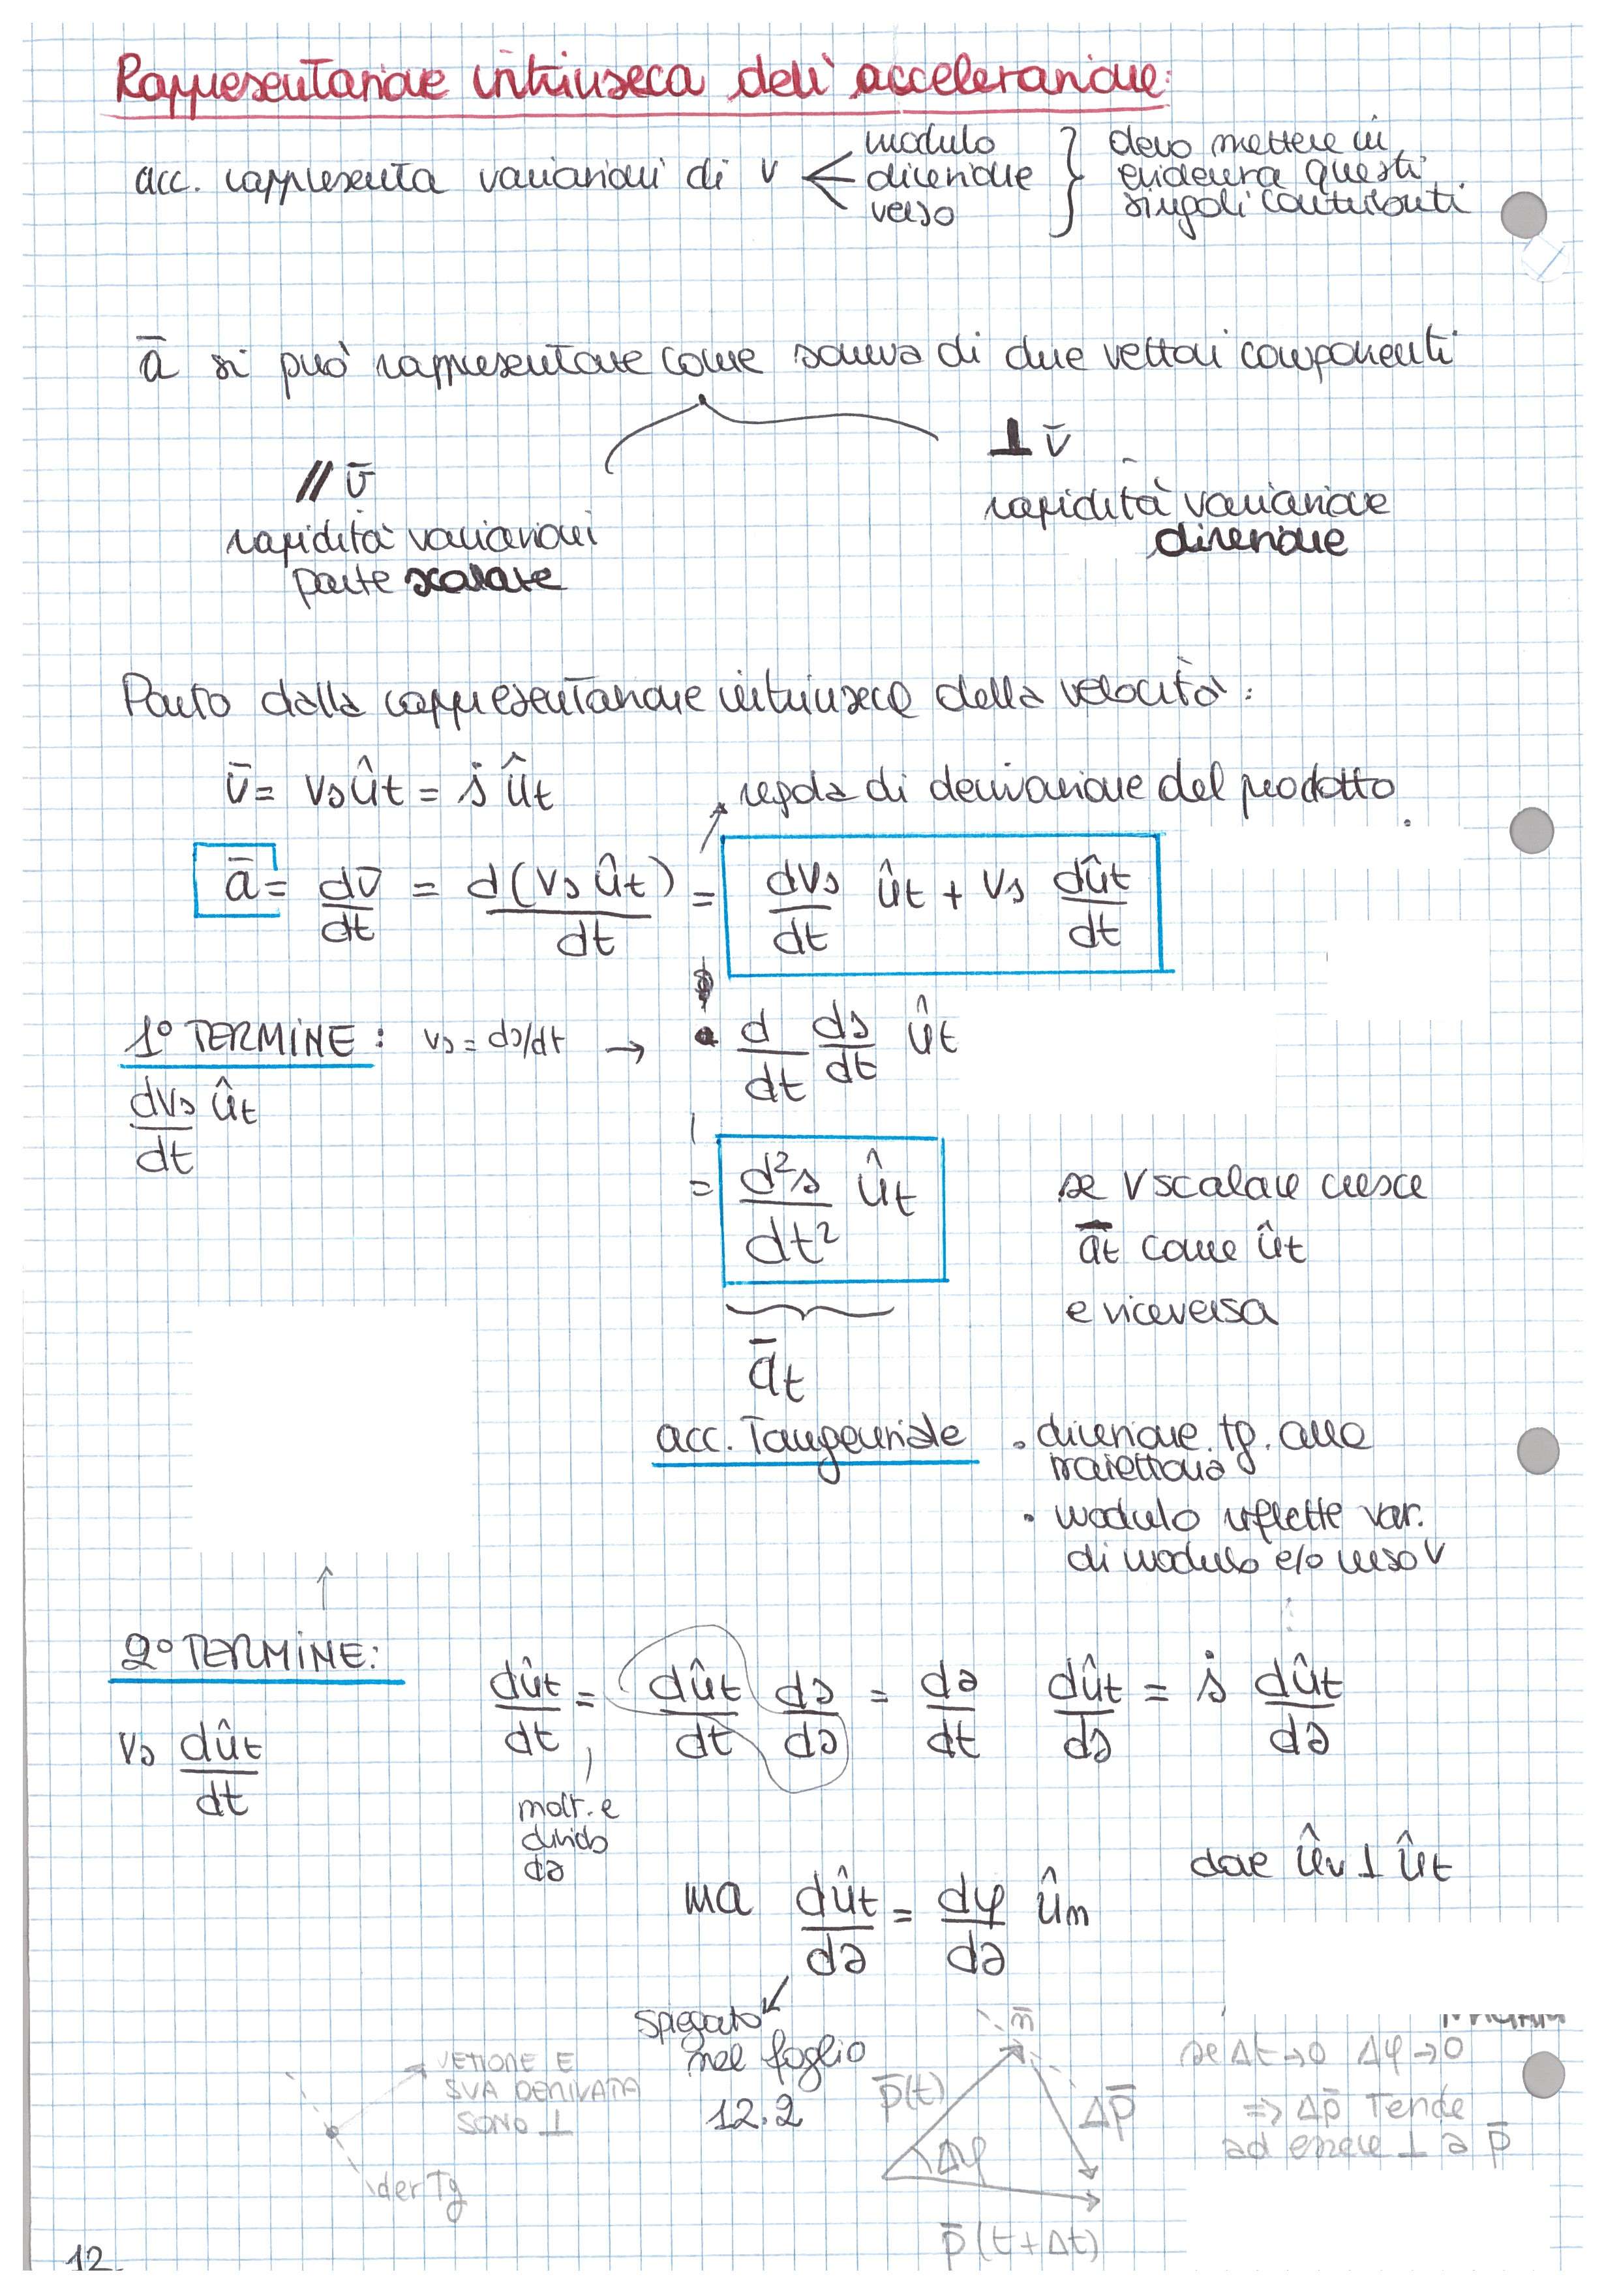 Rappresentazione intrinseca dell'accelerazione:
acc. rappresenta variazioni di v < modulo direzione verso } devo mettere in evidenza questi singoli contributi
ā si può rappresentare come somma di due vettori componenti
// v̄
⊥ v̄
rapidità variazioni
parte scalare
rapidità variazione
direzione
Parto dalla rappresentazione intrinseca della velocità:
v̄ = vs ût = ṡ ût
regola di derivazione del prodotto
ā = dv̄/dt = d(vs ût)/dt = dvs/dt ût + vs dût/dt
1° TERMINE: vs = ds/dt → d/dt ds/dt ût
dvs/dt ût
= d²s/dt² ût
se v scalare cresce
āt come ût
e viceversa
āt
acc. Tangenziale
• direzione tg. alla
traiettoria
• modulo riflette var.
di modulo e/o verso v
2° TERMINE:
vs dût/dt
dût/dt = dût/dt ds/ds = ds/dt dût/ds = ṡ dût/ds
molt. e
divido
ds
ma dût/ds = dφ/ds ûn
dove ûn ⊥ ût
spiegato
nel foglio
12.2
VETTORE E
SUA DERIVATA
SONO ⊥
der Tg
n̄
p̄(t)
Δp̄
Δφ
p̄(t+Δt)
se Δt→0 Δφ→0
=> Δp̄ Tende
ad essere ⊥ a p̄
12.